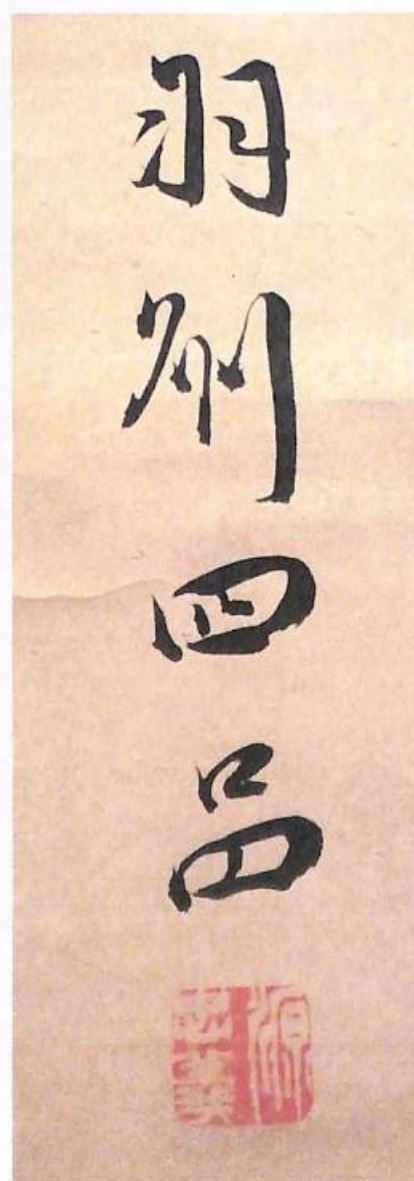 羽州四品